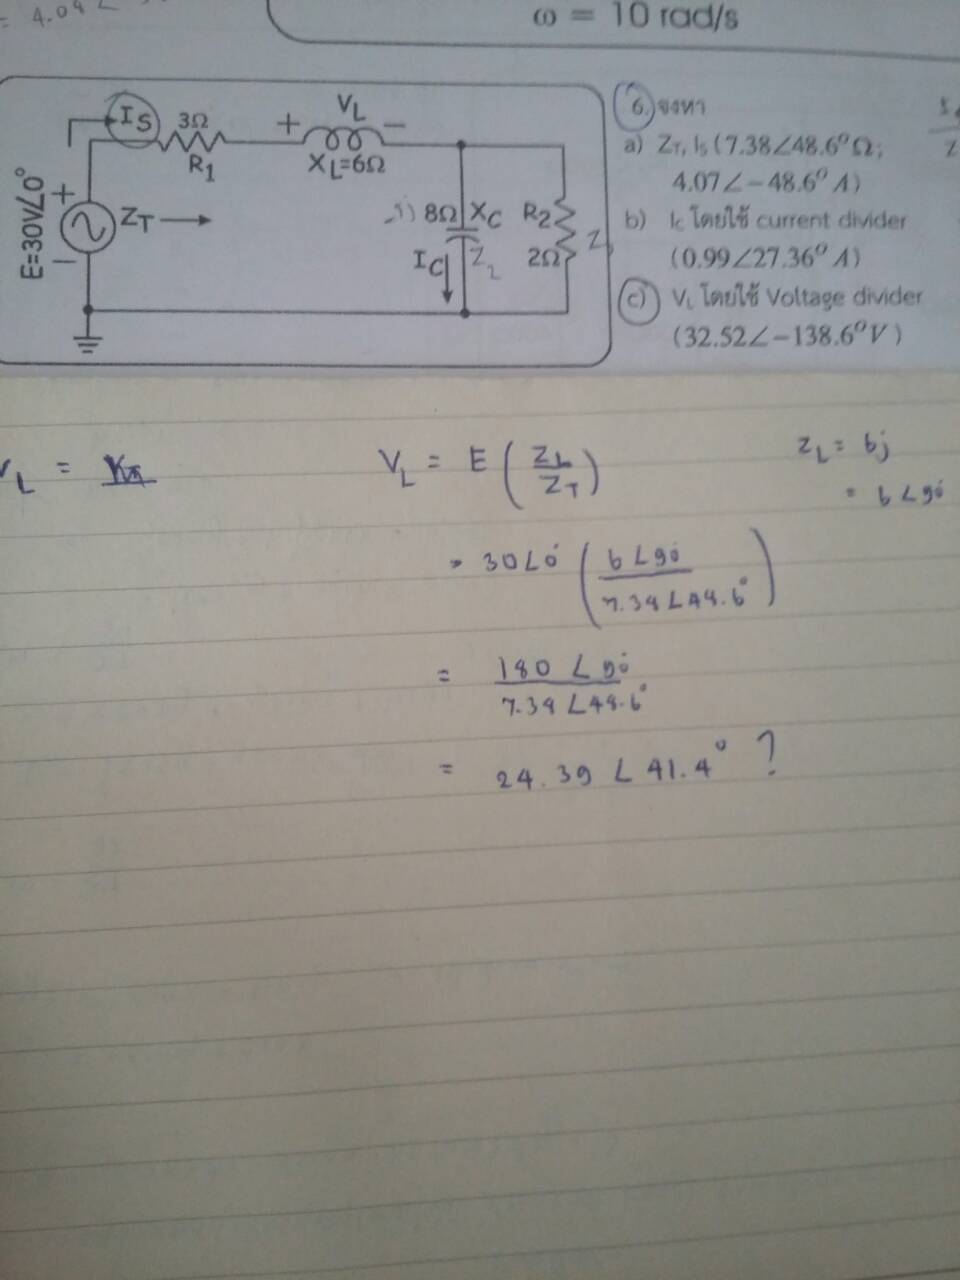 = 4.04∠
ω = 10 rad/s
Is
3Ω
R1
+ VL −
XL=6Ω
E=30V∠0°
+
−
ZT
8Ω XC
IC
Z2
R2
2Ω
6. จงหา
a) ZT, Is (7.38∠48.6°Ω;
4.07∠-48.6° A)
b) Ic โดยใช้ current divider
(0.99∠27.36° A)
c) VL โดยใช้ Voltage divider
(32.52∠-138.6°V)
VL =
VL = E (ZL/ZT)
ZL = 6j
= 6∠90°
= 30∠0° (6∠90°/7.38∠48.6°)
= 180∠90°/7.38∠48.6°
= 24.39∠41.4° ?